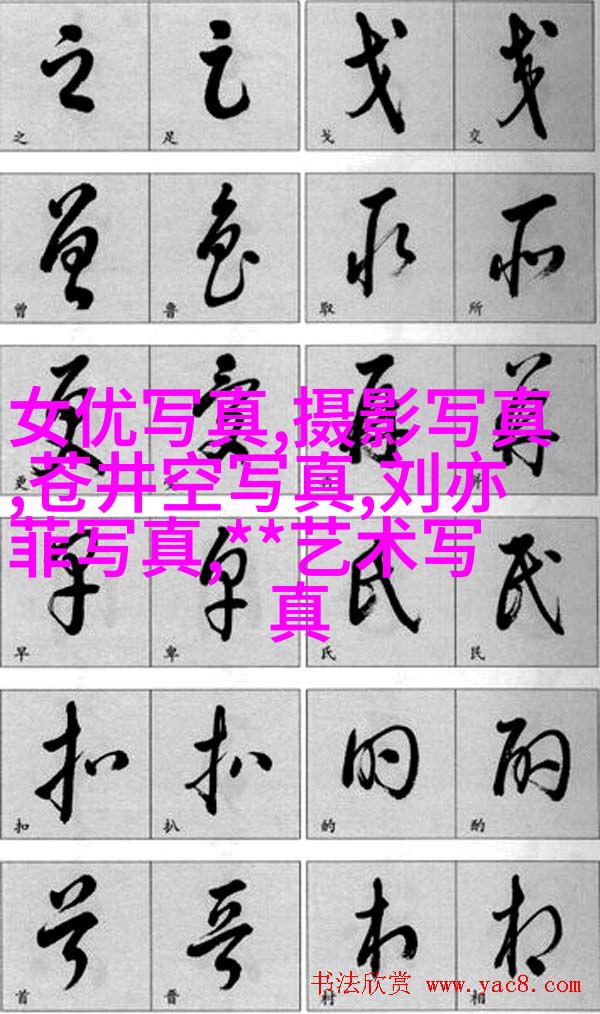 之 足 戈 交
曾 鲁 取 所
女优写真,摄影写真
,苍井空写真,刘亦
菲写真,**艺术写
真
更
早 卑 氏 民
扣 扒 的 酌
首 晋 村 相
书法欣赏 www.yac8.com